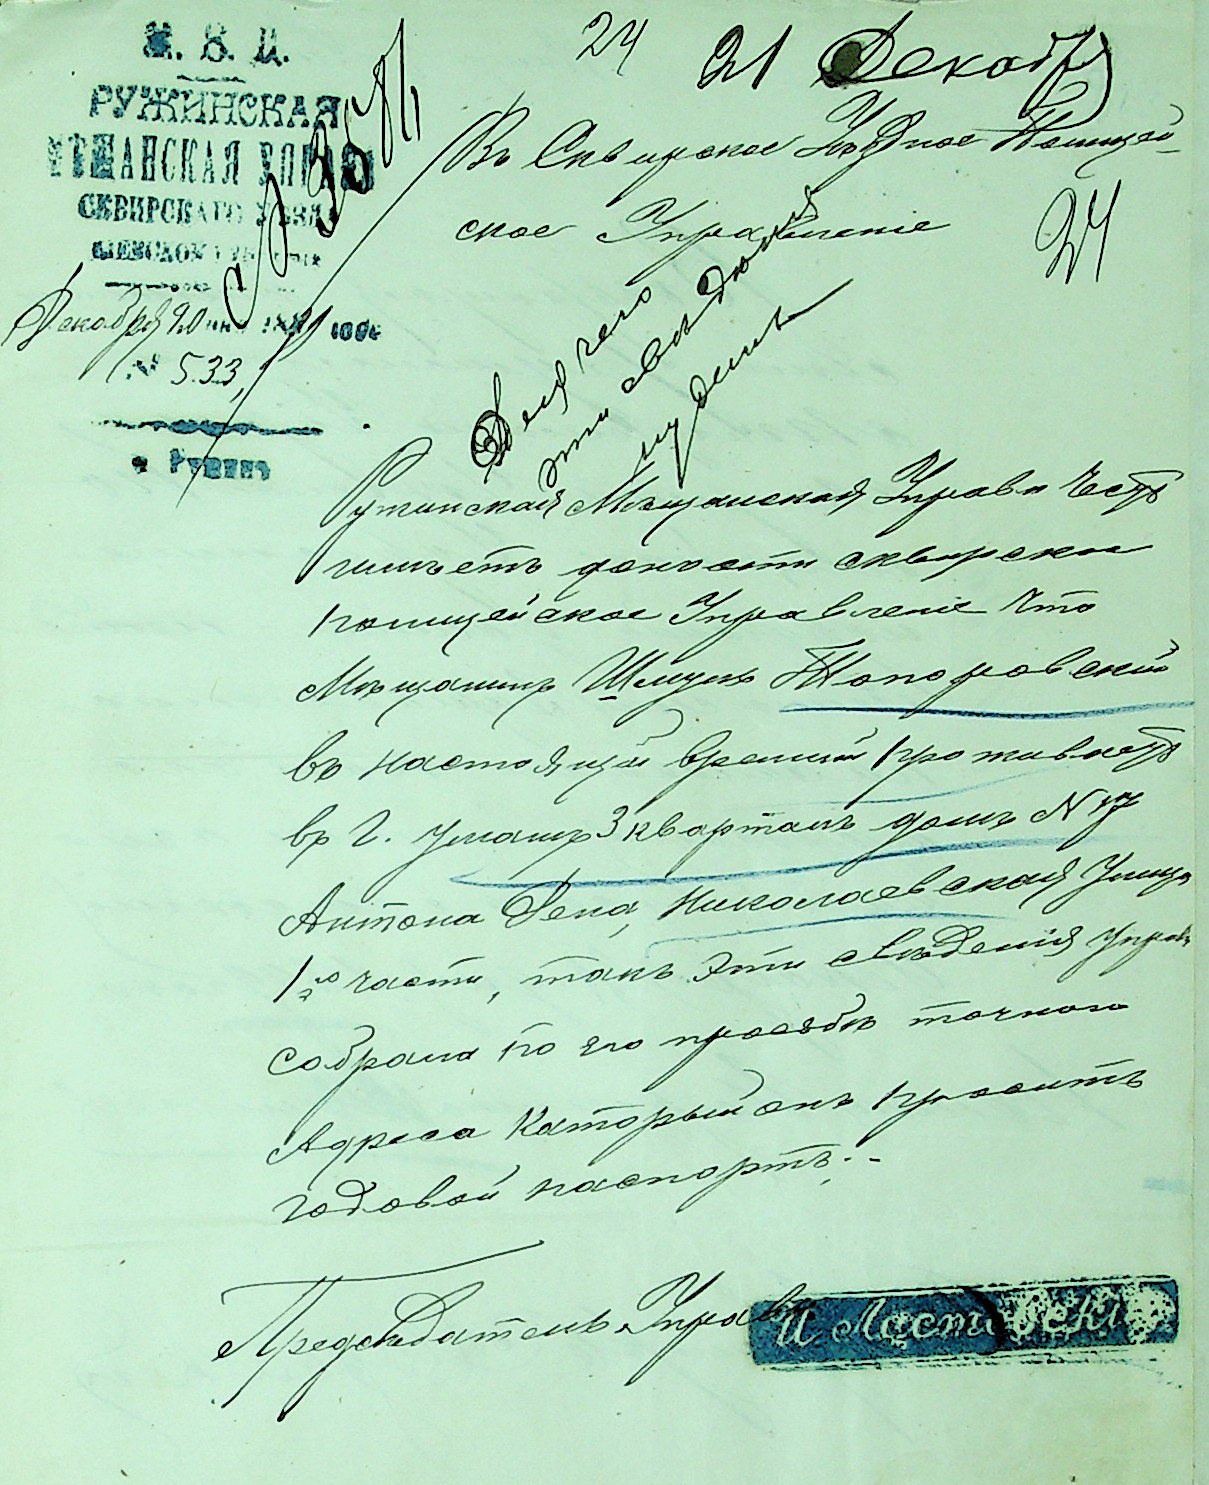 М. В. Д.
РУЖИНСКАЯ
МѢЩАНСКАЯ УПРАВА
СКВИРСКАГО УѢЗДА
КІЕВСКОЙ ГУБЕРНІИ
Декабря 20 дня
№ 533
м. Ружинъ
24
21 Декабр
Въ Сквирское Уѣздное Полицей-
ское Управленіе
24
Для чего
эти свѣденія
Ружинская Мѣщанская Управа Честь
имѣетъ донести сквирское
полицейское Управленіе что
Мѣщанинъ Шмуль Топоровскій
въ настоящій время проживаетъ
въ г. Умань 3 кварталъ домъ N 17
Антона Дена, Николаевская Улица
1й части, такъ эти свѣденія Управа
собрала по его просьбѣ точного
Адреса Каторый онъ проситъ
годовой паспортъ.-
Предсѣдатель Управы
И. Ластовскій